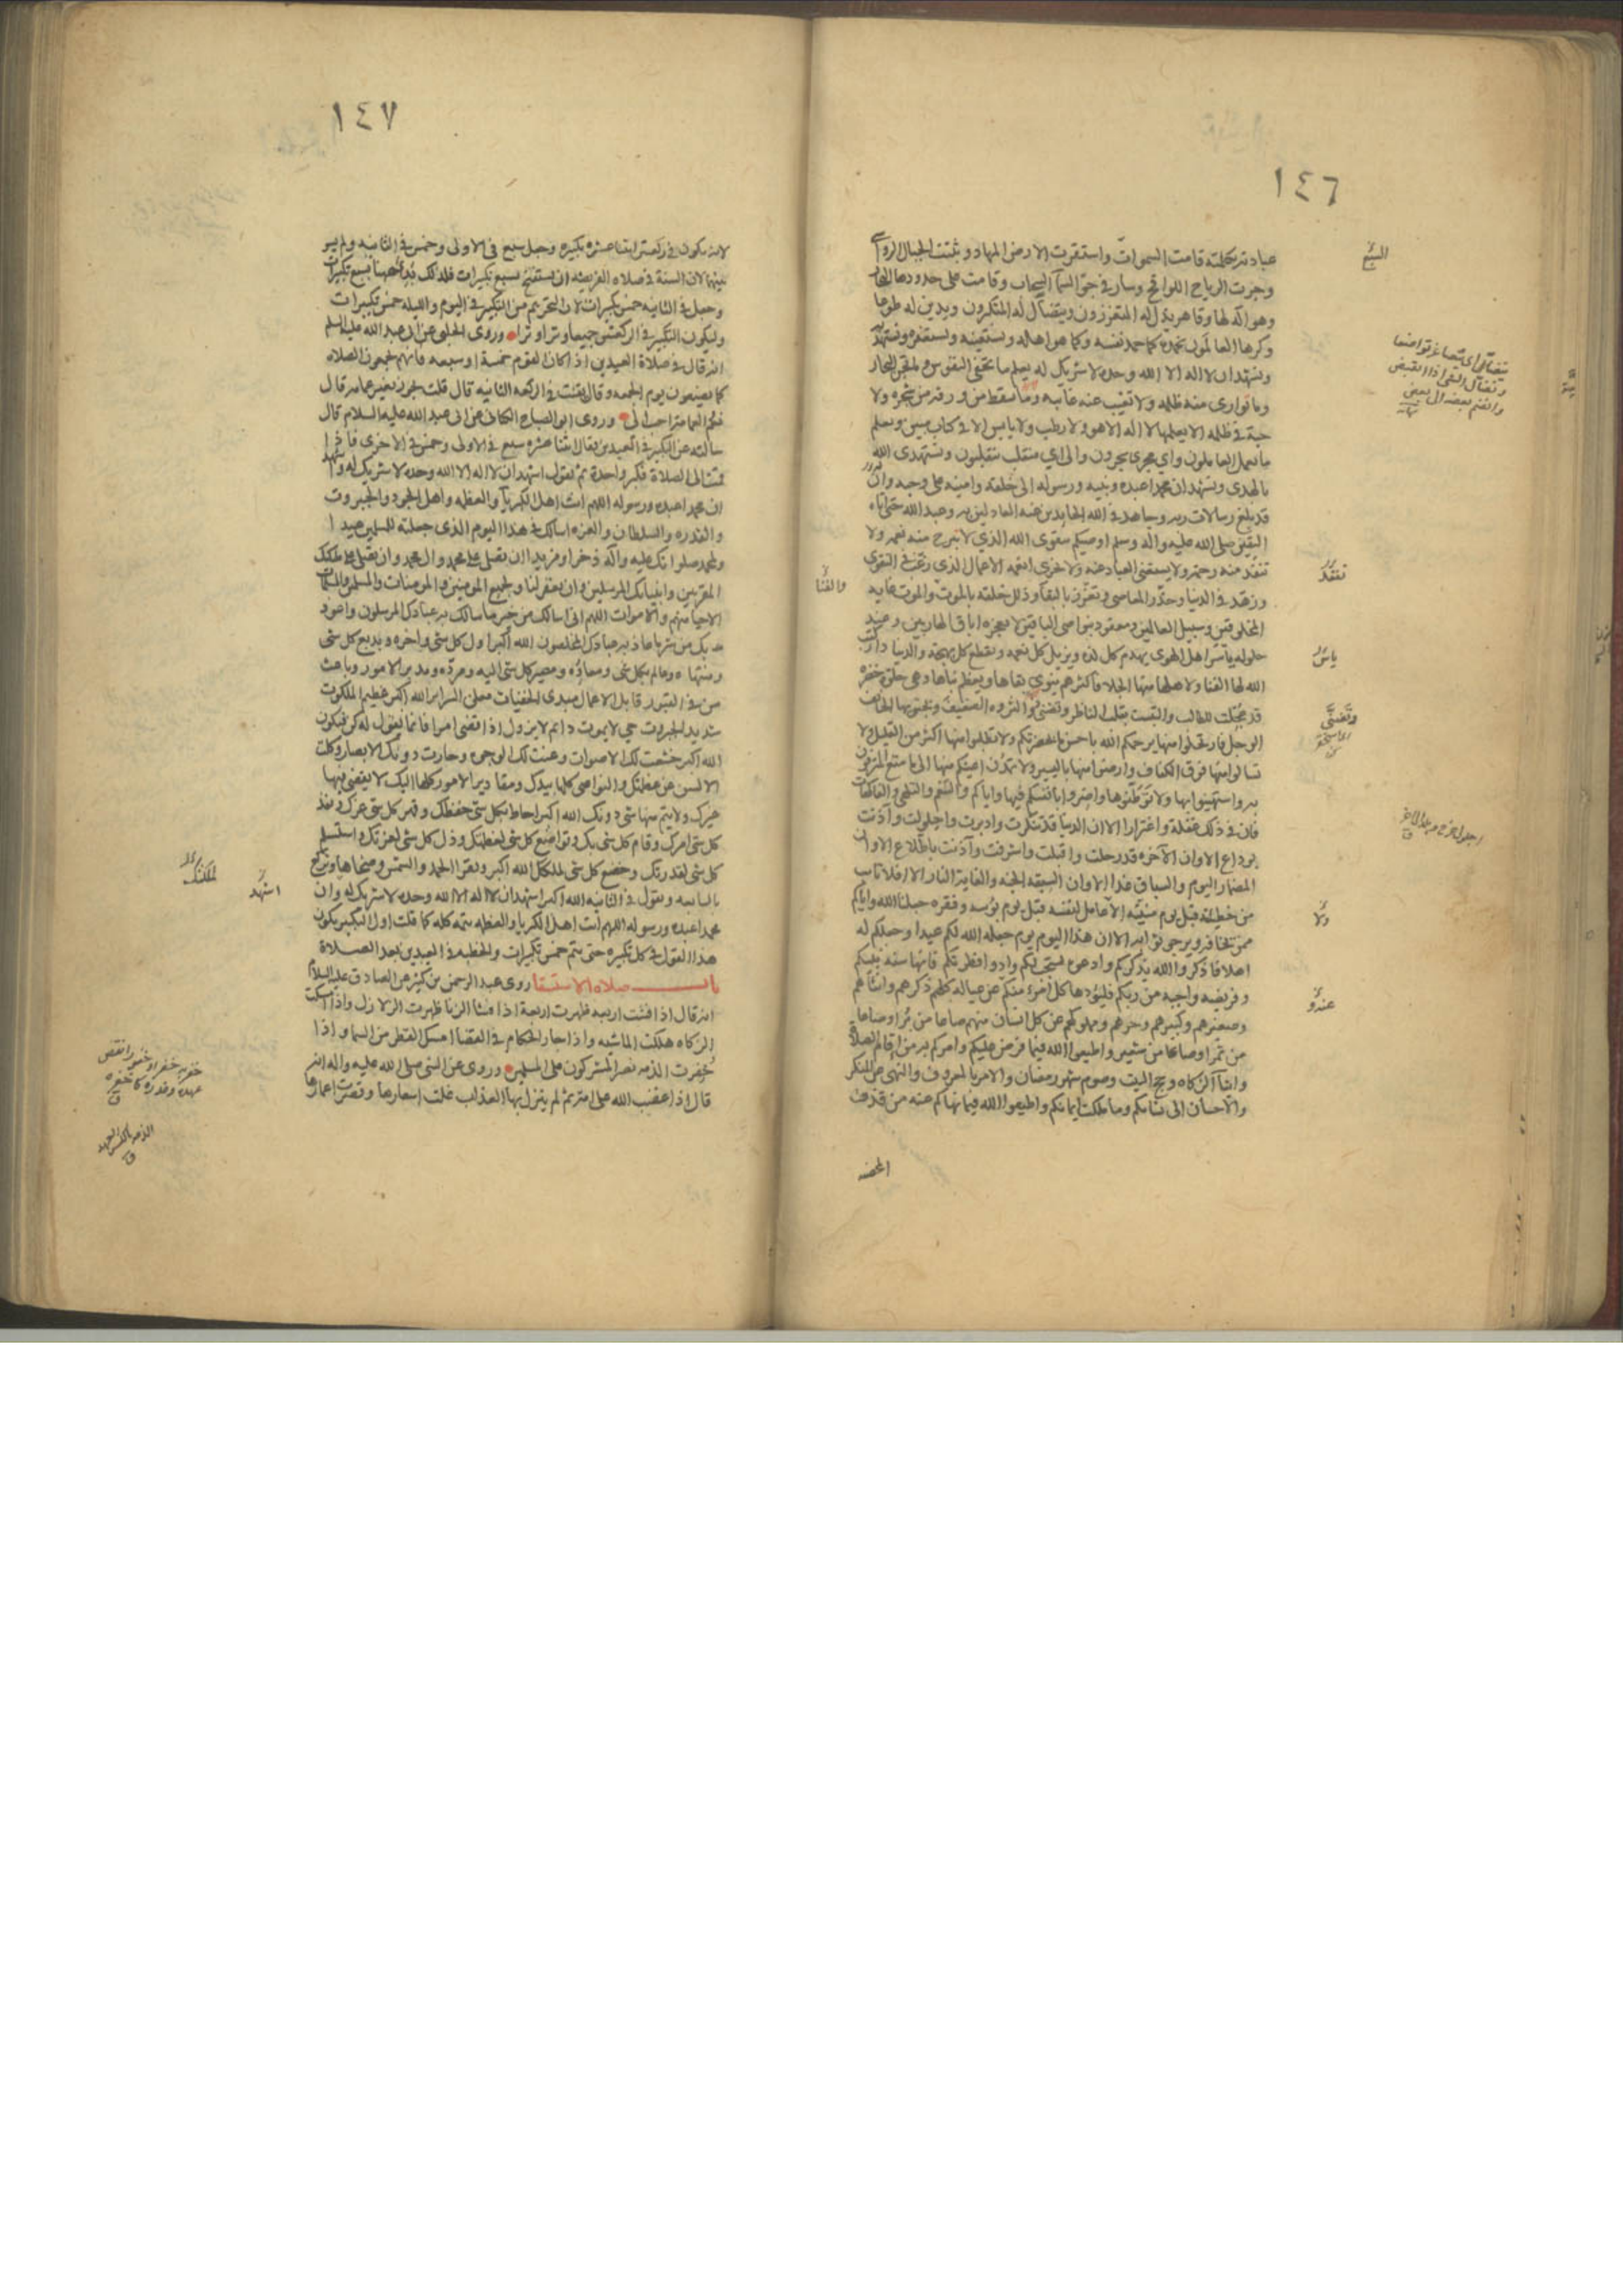 ١٤٦
عبادته بكلمته قامت السموات واستقرت الارض المهاد وثبتت الجبال الرواسي
وجرت الرياح اللواقح وسار في جو السماء السحاب وقامت على حدودها البحار
وهو اله لها وقاهر يذل له المتعززون ويتضأل له المتكبرون ويدين له طوعا
وكرها العالمون نحمده كما حمد نفسه وكما هو اهله ونستعينه ونستغفره ونستهديه
ونشهد ان لا اله الا الله وحده لا شريك له يعلم ما تخفي النفوس وما تجن البحار
وما توارى منه ظلمه ولا تغيب عنه غايبه وما تسقط من ورقه من شجره ولا
حبة في ظلمه الا يعلمها لا اله الا هو ولا رطب ولا يابس الا في كتاب مبين ويعلم
ما يعمل العاملون واي مجرى يجرون والى اي منقلب ينقلبون ونستهدي الله
بالهدى ونشهد ان محمدا عبده ونبيه ورسوله الى خلقه وامينه على وحيه وانه
قد بلغ رسالات ربه وجاهد في الله الحايدين عنه العادلين به وعبد الله حتى اتاه
اليقين صلى الله عليه واله وسلم اوصيكم بتقوى الله الذي لا تبرح منه نعمه ولا
تنفد منه رحمه ولا يستغنى العباد عنه ولا تجزى انعمه الاعمال الذي رغب في التقوى
وزهد في الدنيا وحذر المعاصي وتعزز بالبقا وذلل خلقه بالموت والموت غايه
المخلوقين وسبيل العالمين ومعقود بنواصي الباقين لا يعجزه اباق الهاربين وعند
حلوله ياسر اهل الهوى يهدم كل لذه ويزيل كل نعمه ويقطع كل بهجه والدنيا دار كتب
الله لها الفنا ولاهلها منها الجلا فاكثرهم ينوي بقاها ويعظم بناها وهي حلوه خضره
قد عجلت للطالب والتبست بقلب الناظر
الوجل فارتحلوا منها يرحمكم الله باحسن ما بحضرتكم ولا تطلبوا منها اكثر من القليل ولا
تسالوا منها فوق الكفاف وارضوا منها باليسير ولا تمدن اعينكم منها الى ما متع المترفون
به واستهينوا بها ولا توطنوها واضروا بانفسكم فيها واياكم والتنعم والتلهي والفاكهات
فان في ذلك غفلة واغترارا الا ان الدنيا قد تنكرت وادبرت واحلولت واذنت
بوداع الا وان الاخره قد رحلت واقبلت واشرفت واذنت باطلاع الا وان
المضمار اليوم والسباق غدا الا وان السبقه الجنه والغاية النار الا افلا تائب
من خطيئته قبل يوم منيته الا عامل لنفسه قبل يوم بؤسه وفقره جعلنا الله واياكم
ممن يخافه ويرجو ثوابه الا ان هذا اليوم يوم جعله الله لكم عيدا وجعلكم له
اهلا فاذكروا الله يذكركم وادعوه يستجب لكم وادوا فطرتكم فانها سنه نبيكم
وفريضه واجبه من ربكم فليؤدها كل امرء منكم عن عياله كلهم ذكرهم وانثاهم
وصغيرهم وكبيرهم وحرهم ومملوكهم عن كل انسان منهم صاعا من بر او صاعا
من تمر او صاعا من شعير واطيعوا الله فيما فرض عليكم وامركم به من اقام الصلاة
وايتا الزكاه وحج البيت وصوم شهر رمضان والامر بالمعروف والنهي عن المنكر
والاحسان الى نسائكم وما ملكت ايمانكم واطيعوا الله فيما نهاكم عنه من قذف
المحصنه
السبع
يتضأل اي يتصاغر تواضعا
وتضأل الشي اذا انقبض
وانضم بعضه الى بعض
تنفد
والفنا
ياسر
ولا
عند
١٤٧
لانه يكون في ركعتين اثنتا عشره تكبيره وجعل سبع في الاولى وخمس في الثانيه ولم يسو
بينهما لان السنة في صلاه الفريضه ان يستفتح بسبع تكبيرات فلذلك بدئ ههنا بسبع تكبيرات
وجعل في الثانيه خمس تكبيرات لان التحريم من التكبير في اليوم والليله خمس تكبيرات
وليكون التكبير في الركعتين جميعا وترا وترا وروى الحلبي عن ابي عبد الله عليه السلم
انه قال في صلاة العيدين اذا كان القوم خمسة او سبعه فانهم يجمعون الصلاه
كما يصنعون يوم الجمعه وقال يقنت في الركعه الثانيه قال قلت يجوز بغير عمامه قال
نعم والعمامة احب الي وروى ابو الصباح الكناني عن ابي عبد الله عليه السلام قال
سالته عن التكبير في العيدين فقال اثنتا عشره سبع في الاولى وخمس في الاخرى فاذا
قمت الى الصلاة فكبر واحدة ثم تقول اشهد ان لا اله الا الله وحده لا شريك له واشهد
ان محمدا عبده ورسوله اللهم انت اهل الكبريا والعظمه واهل الجود والجبروت
والقدره والسلطان والعزه اسالك في هذا اليوم الذي جعلته للمسلمين عيدا
ولمحمد صلواتك عليه واله ذخرا ومزيدا ان تصلي على محمد وال محمد وان تصلي على ملائكتك
المقربين وانبيائك المرسلين وان تغفر لنا ولجميع المومنين والمومنات والمسلمين والمسلمات
الاحيا منهم والاموات اللهم اني اسالك من خير ما سالك به عبادك المرسلون واعوذ
بك من شر ما عاذ به عبادك المخلصون الله اكبر اول كل شي واخره وبديع كل شي
ومنتهاه وعالم بكل شي ومعاده ومصير كل شي اليه ومرده ومدبر الامور وباعث
من في القبور قابل الاعمال مبدي الخفيات معلن السراير الله اكبر عظيم الملكوت
شديد الجبروت حي لا يموت دائم لا يزول اذا قضى امرا فانما يقول له كن فيكون
الله اكبر خشعت لك الاصوات وعنت لك الوجوه وحارت دونك الابصار وكلت
الالسن عن عظمتك والنواصي كلها بيدك ومقادير الامور كلها اليك لا يقضي فيها
غيرك ولا يتم منها شي دونك الله اكبر احاط بكل شي حفظك وقهر كل شي عزك ونفذ
كل شي امرك وقام كل شي بك وتواضع كل شي لعظمتك وذل كل شي لعزتك واستسلم
كل شي لقدرتك وخضع كل شي لملكك الله اكبر وتقرا الحمد والشمس وضحاها وتركع
بالسابعه وتقول في الثانيه الله اكبر اشهد ان لا اله الا الله وحده لا شريك له وان
محمدا عبده ورسوله اللهم انت اهل الكبريا والعظمه تتمه كله كما قلت اول التكبير يكون
هذا القول في كل تكبيره حتى يتم خمس تكبيرات والخطبه في العيدين بعد الصلاة
باب صلاه الاستسقا روى عبد الرحمن بن كثير عن الصادق عليه السلام
انه قال اذا فشت اربعه ظهرت اربعة اذا فشا الزنا ظهرت الزلازل واذا امسكت
الزكاه هلكت الماشيه واذا جار الحكام في القضا امسك القطر من السما واذا
خفرت الذمه نصر المشركون على المسلمين وروى عن النبي صلى الله عليه واله انه
قال اذا غضب الله على امة ثم لم ينزل بها العذاب غلت اسعارها وقصرت اعمارها
اشهد
لملكك
خفر به خفرا وخفورا نقض
عهده وغدره كاخفره
الذمه بالكسر العهد